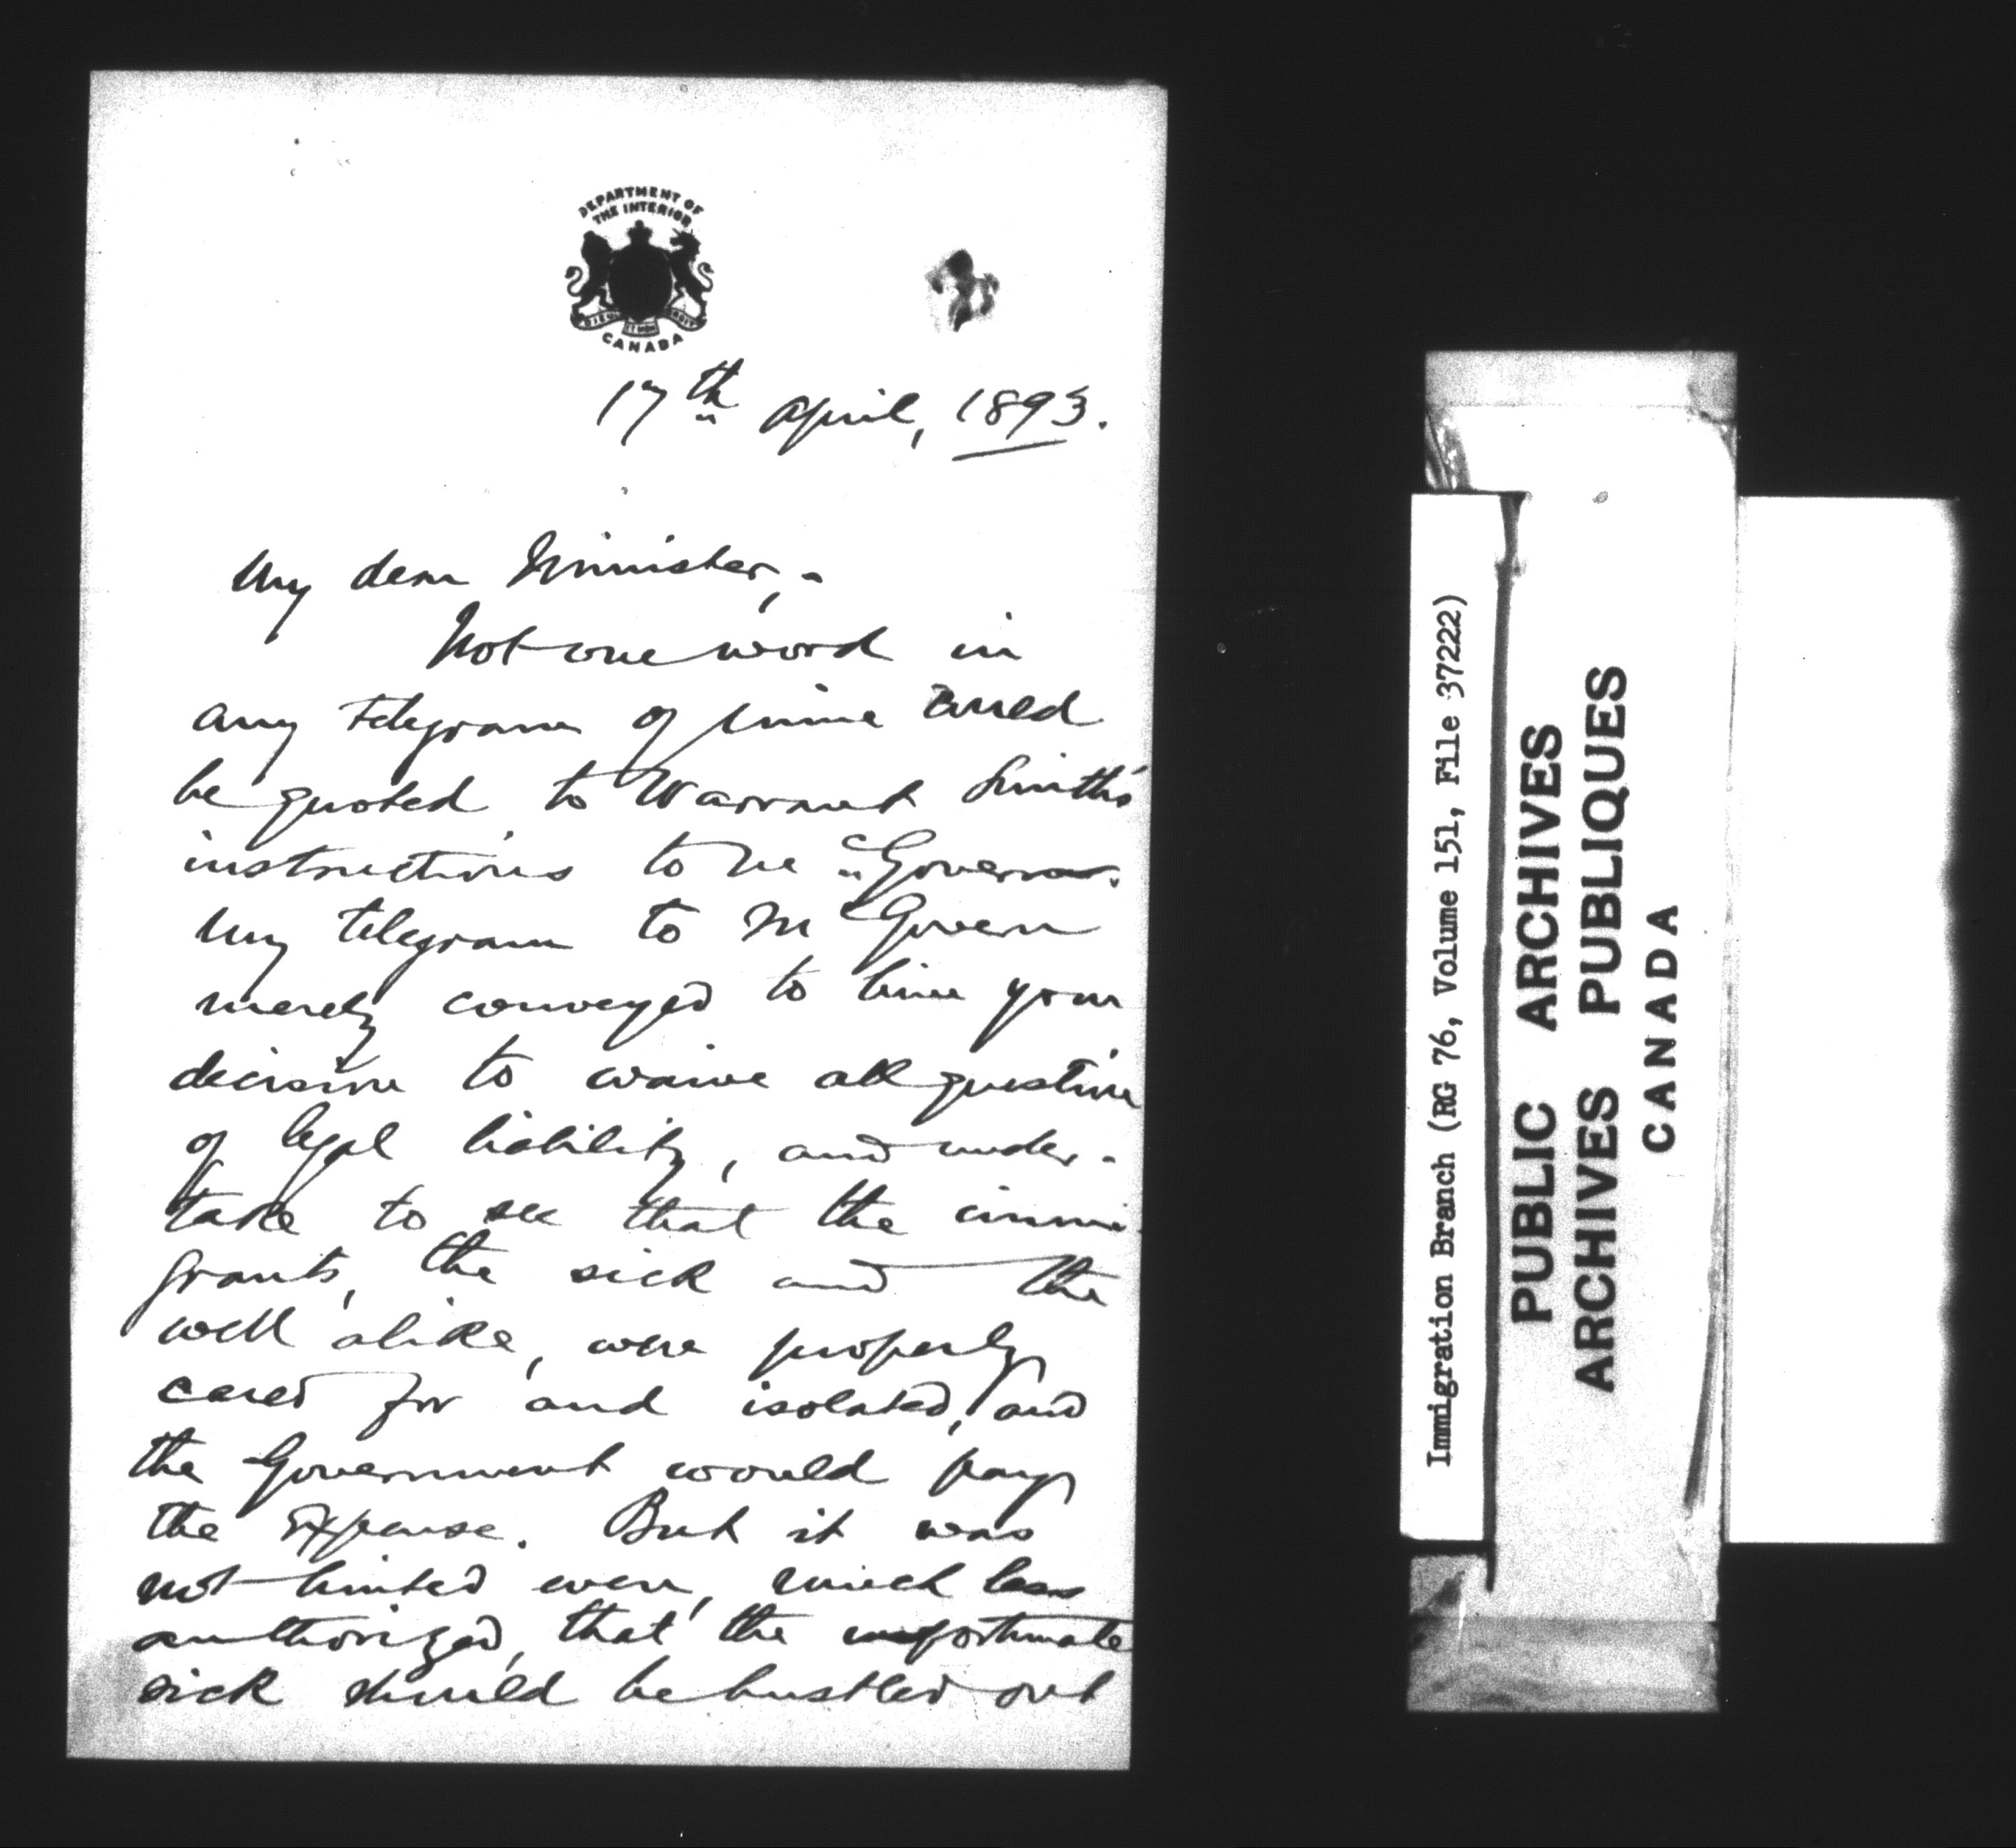 DEPARTMENT OF
THE INTERIOR
DIEU ET MON DROIT
CANADA
17th April, 1893.
My dear Minister,-
Not one word in
any telegram of mine could
be quoted to warrant Smith's
instructions to McGovern.
My telegram to McGovern
merely conveyed to him your
decision to waive all question
of legal liability, and under-
take to see that the immi-
grants, the sick and the
well alike, were properly
cared for and isolated, and
the Government would pay
the expense. But it was
not hinted even, much less
authorized, that the unfortunate
sick should be hustled out
Immigration Branch (RG 76, Volume 151, File 37222)
PUBLIC ARCHIVES
ARCHIVES PUBLIQUES
CANADA